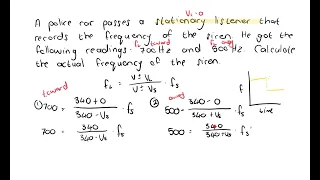 VL = 0
A police car passes a stationary listener that
records the frequency of the siren. He got the
fL toward fL away
following readings: 700Hz and 500Hz. Calculate
the actual frequency of the siren.
fL = V ± VL / V ± Vs · fs
toward
① 700 = 340 + 0 / 340 - Vs · fs
700 = 340 / 340 - Vs · fs
away
② 500 = 340 - 0 / 340 + Vs · fs
500 = 340 / 340 + Vs · fs
f
time